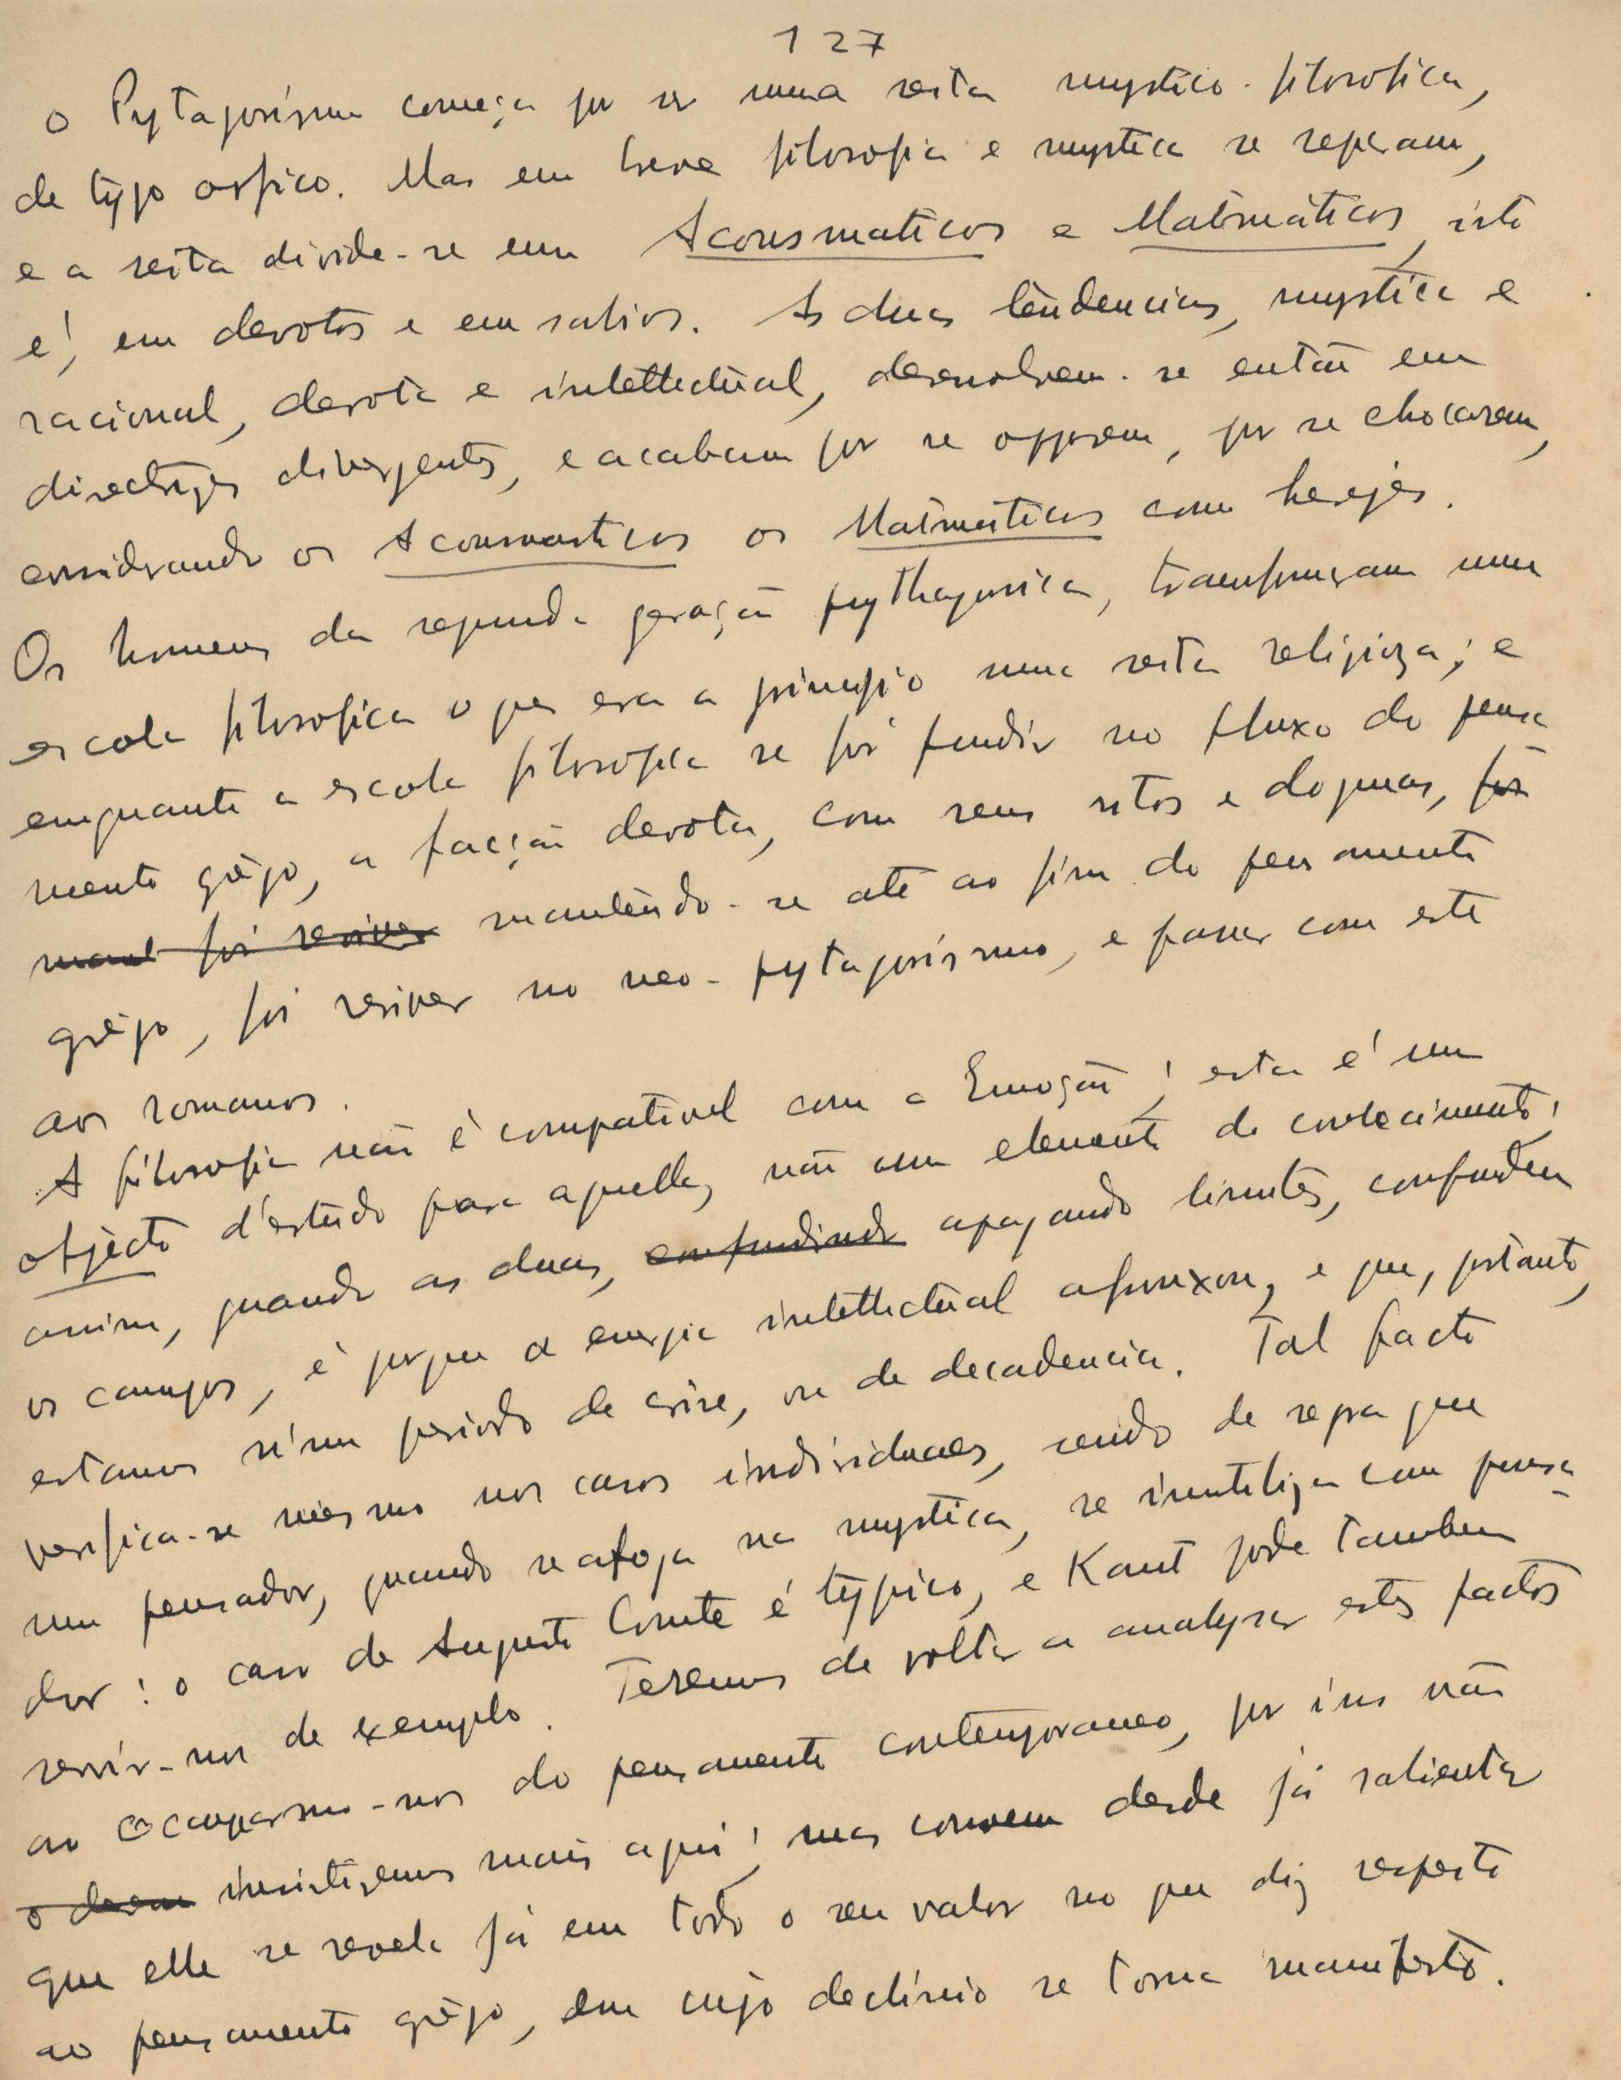 127
O Pytagorismo começa por ser uma seita mystico-filosofica,
de typo orfico. Mas em breve filosofia e mystica se separam,
e a seita divide-se em Acousmaticos e Matematicos, isto
é, em devotos e em sabios. As duas tendencias, mystica e
racional, devota e intellectual, desenvolvem-se então em
directrizes divergentes, e acabam por se opporem, por se chocarem,
considerando os Acousmaticos os Matematicos como herejes.
Os homens da segunda geração pythagorica, transformaram numa
escola filosofica o que era a principio uma seita religioza; e
emquanto a escola filosofica se foi fundir no fluxo do pensa
mento grêgo, a facção devota, com seus ritos e dogmas, foi
mant foi reviver mantendo-se até ao fim do pensamento
grêgo, foi reviver no neo-pytagorismo, e passar com este
aos romanos.
A filosofia não é compativel com a Emoção; esta é um
objecto d'estudo para aquella, não um elemento de conhecimento;
assim, quando as duas, confundindo apagando limites, confundem
os campos, é porque a energia intellectual afrouxou, e que, portanto,
estamos n'um periodo de crise, ou de decadencia. Tal facto
verifica-se mesmo nos casos individuaes, sendo de regra que
um pensador, quando se afoga na mystica, se inutiliza com pensa
dor: o caso de Augusto Comte é typico, e Kant pode tambem
servir-nos de exemplo. Teremos de voltar a analysar estes factos
ao occuparmo-nos do pensamento contemporaneo, por isso não
insistiremos mais aqui; mas convem desde já salientar
que elle se revela já em todo o seu valor no que diz respeito
ao pensamento grêgo, em cujo declinio se torna manifesto.